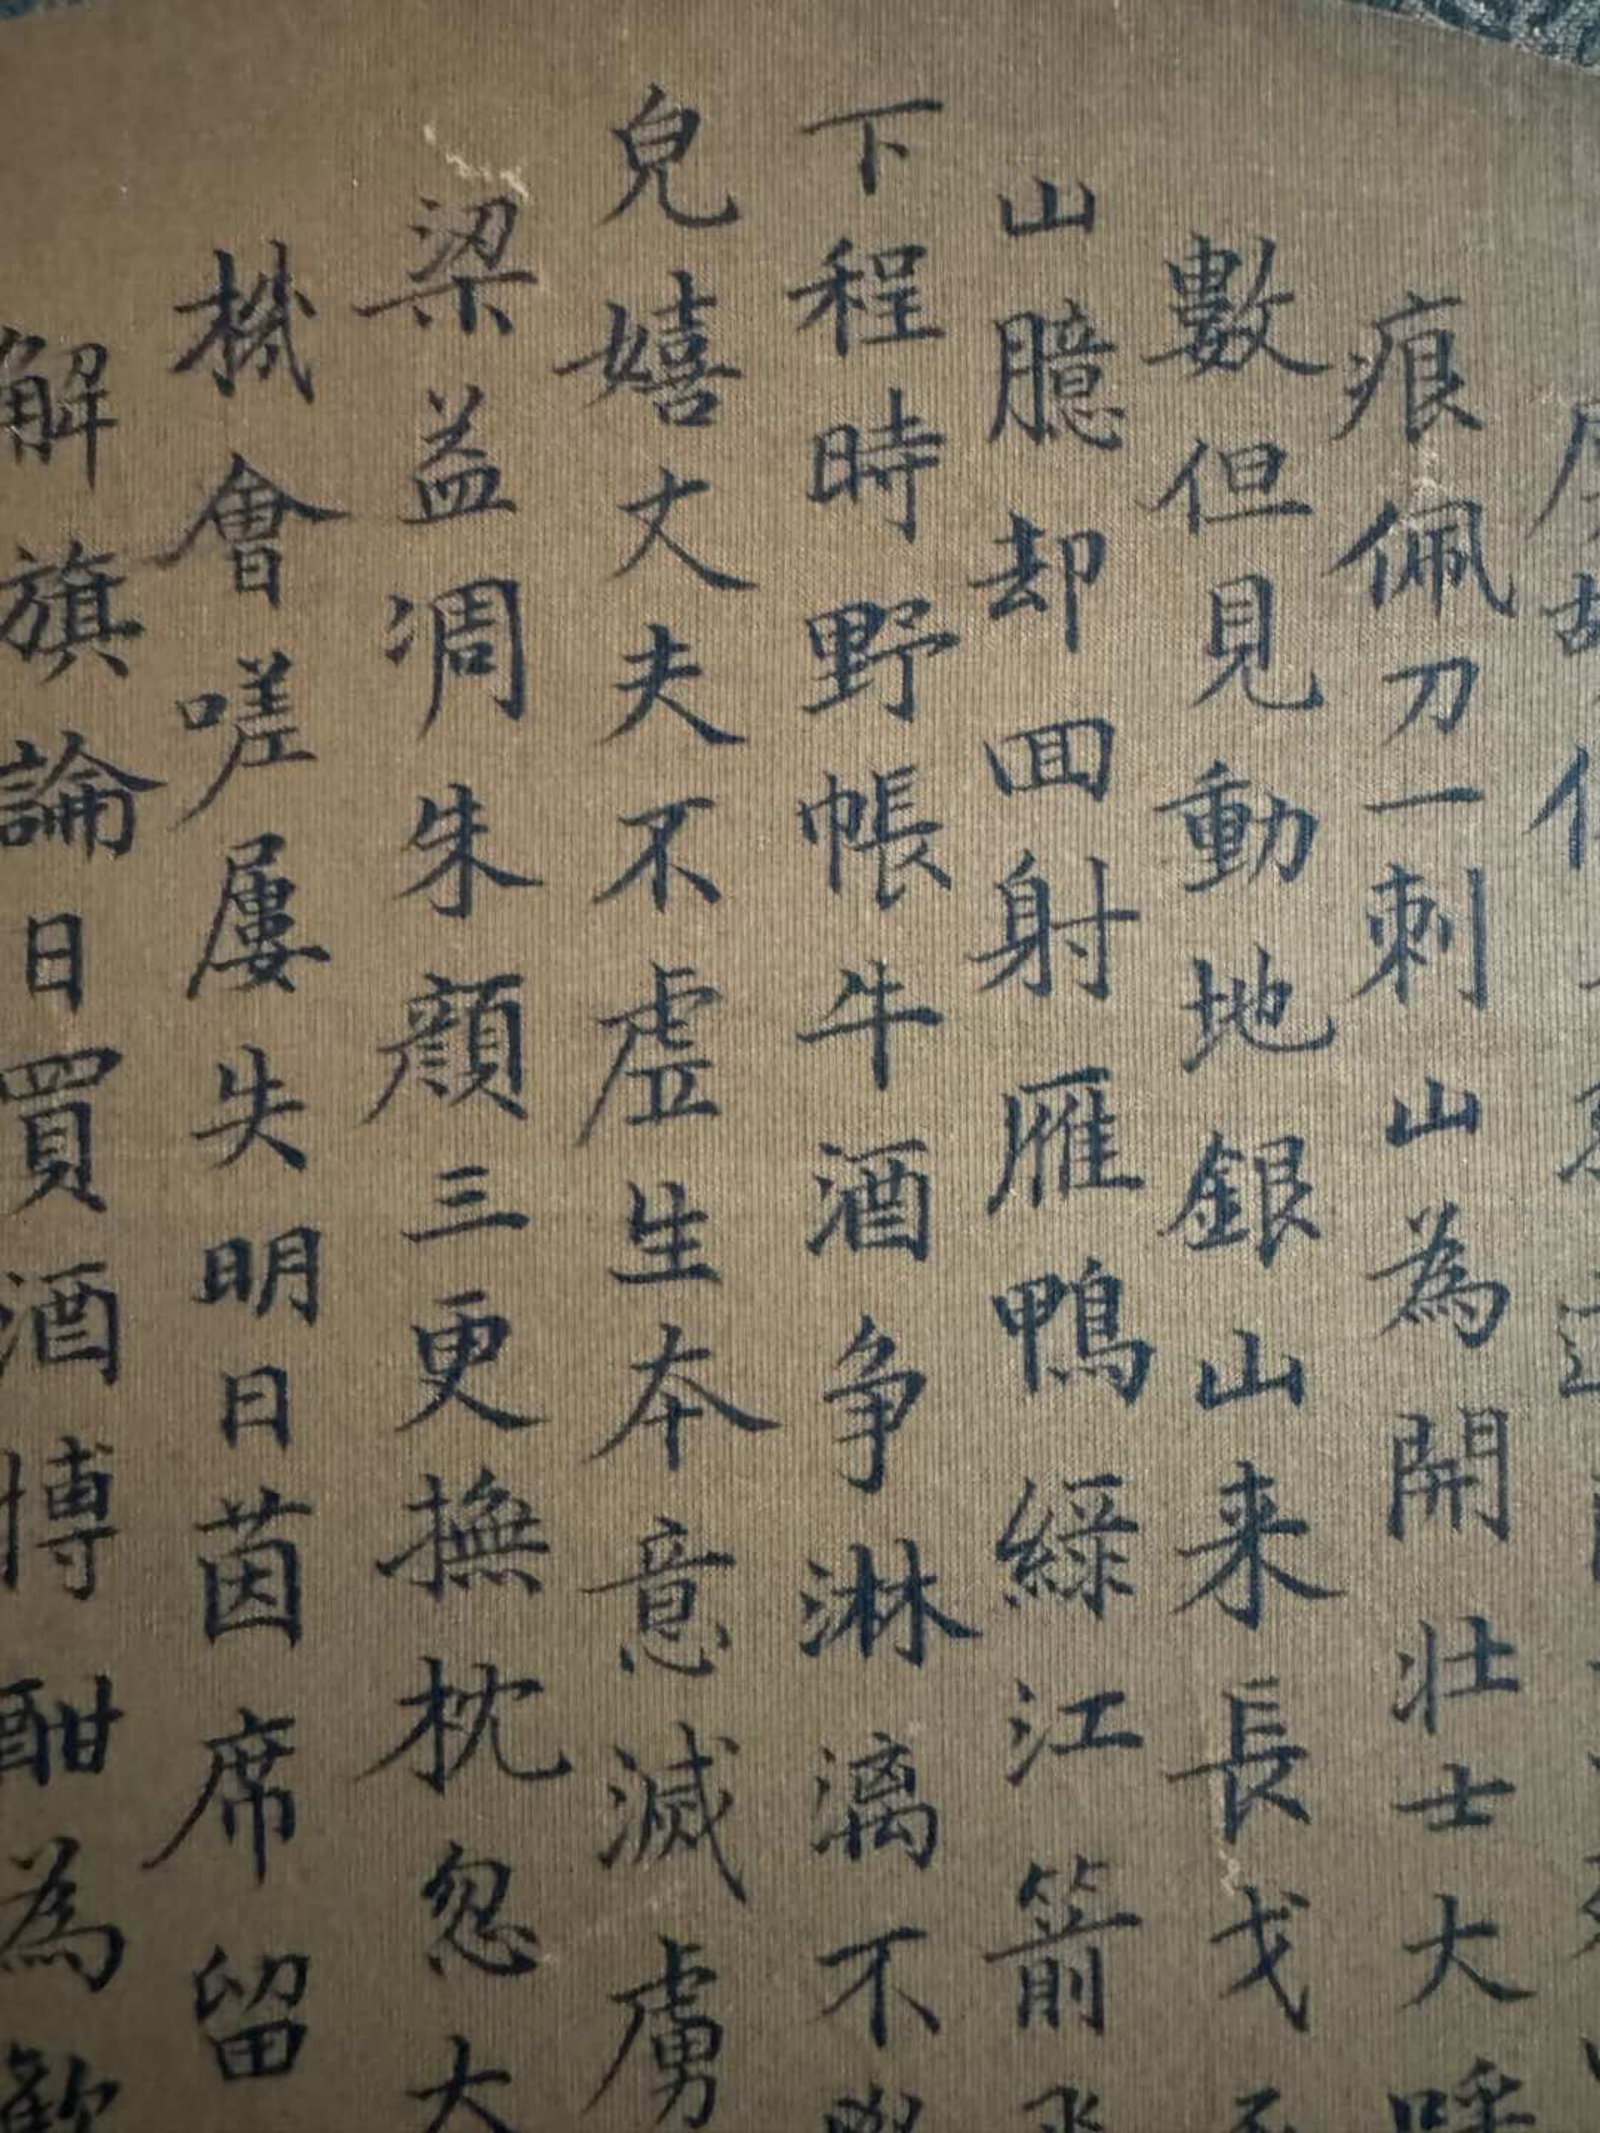 痕佩刀一刺山為開壯士大呼
數但見動地銀山来長戈
山臆却回射雁鴨綠江箭飛
下程時野帳牛酒争淋漓不
兒嬉丈夫不虚生本意滅虜
梁益凋朱顔三更撫枕忽大
機會嗟屢失明日茵席留
解旗論日買酒博酣為歡